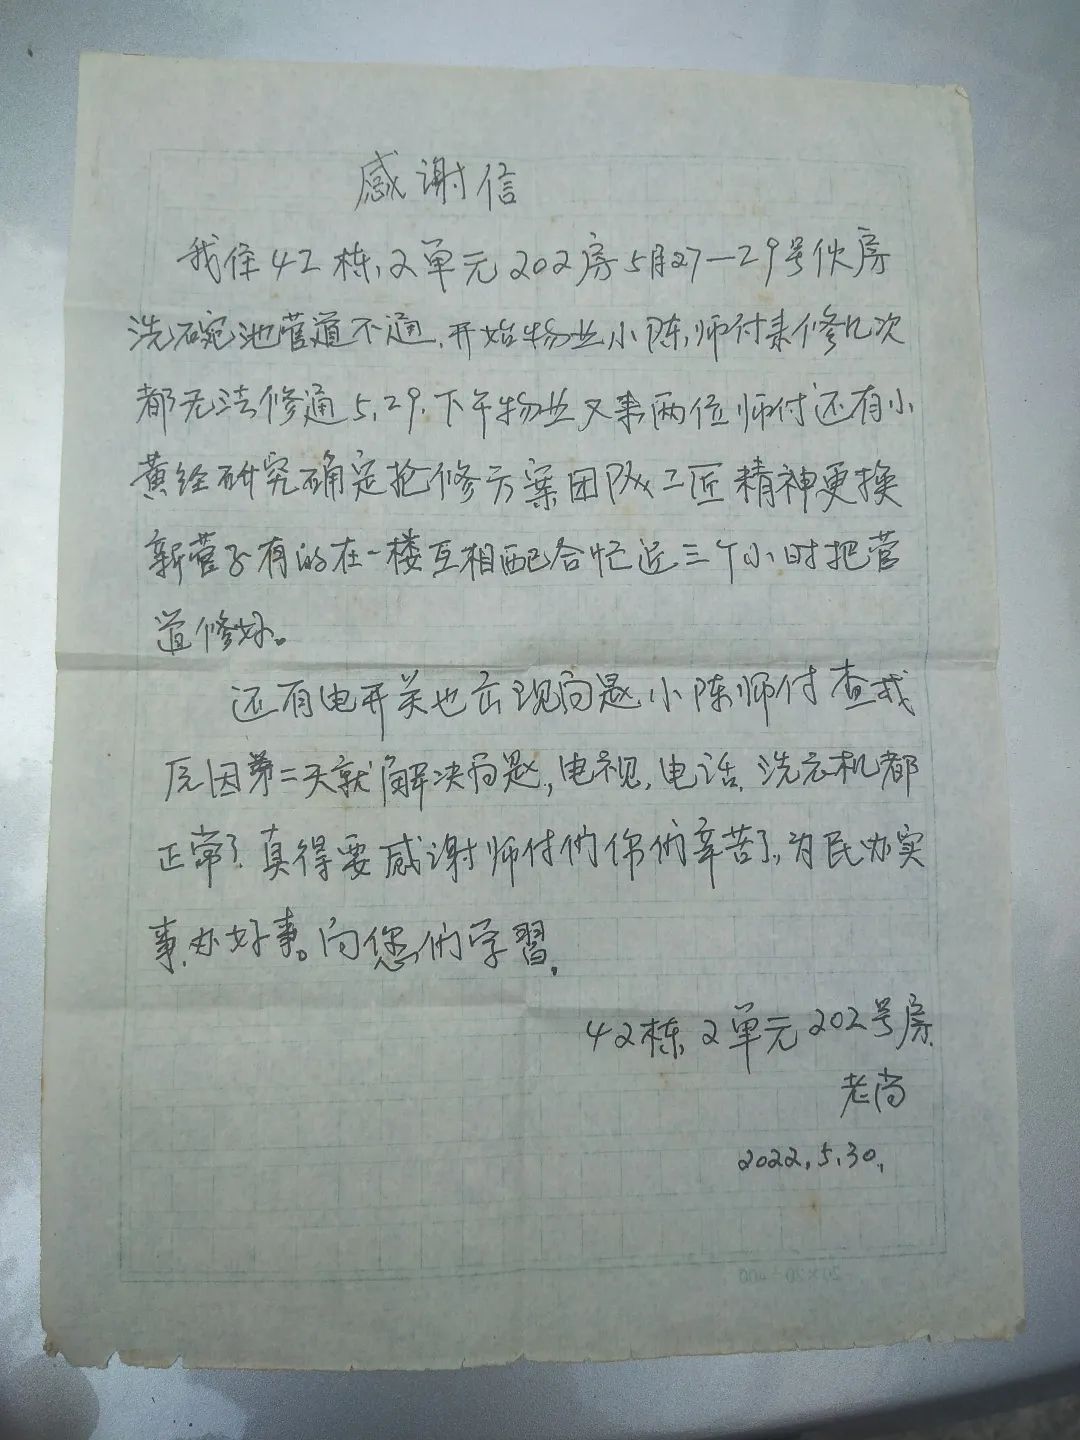 感谢信
我住42栋,2单元202房5月27—29号伙房
洗碗池管道不通,开始物业小陈,师付来修几次
都无法修通5,29,下午物业又来两位师付还有小
黄经研究确定抢修方案团队工匠精神更换
新管子有的在一楼互相配合忙近三个小时把管
道修好。
还有电开关也出现问题,小陈师付查找
原因第二天就解决问题,电视,电话,洗衣机都
正常了,真得要感谢师付们你们辛苦了,为民办实
事,办好事。向您们学习,
42栋,2单元202号房,
老尚
2022,5,30,
20×20=400